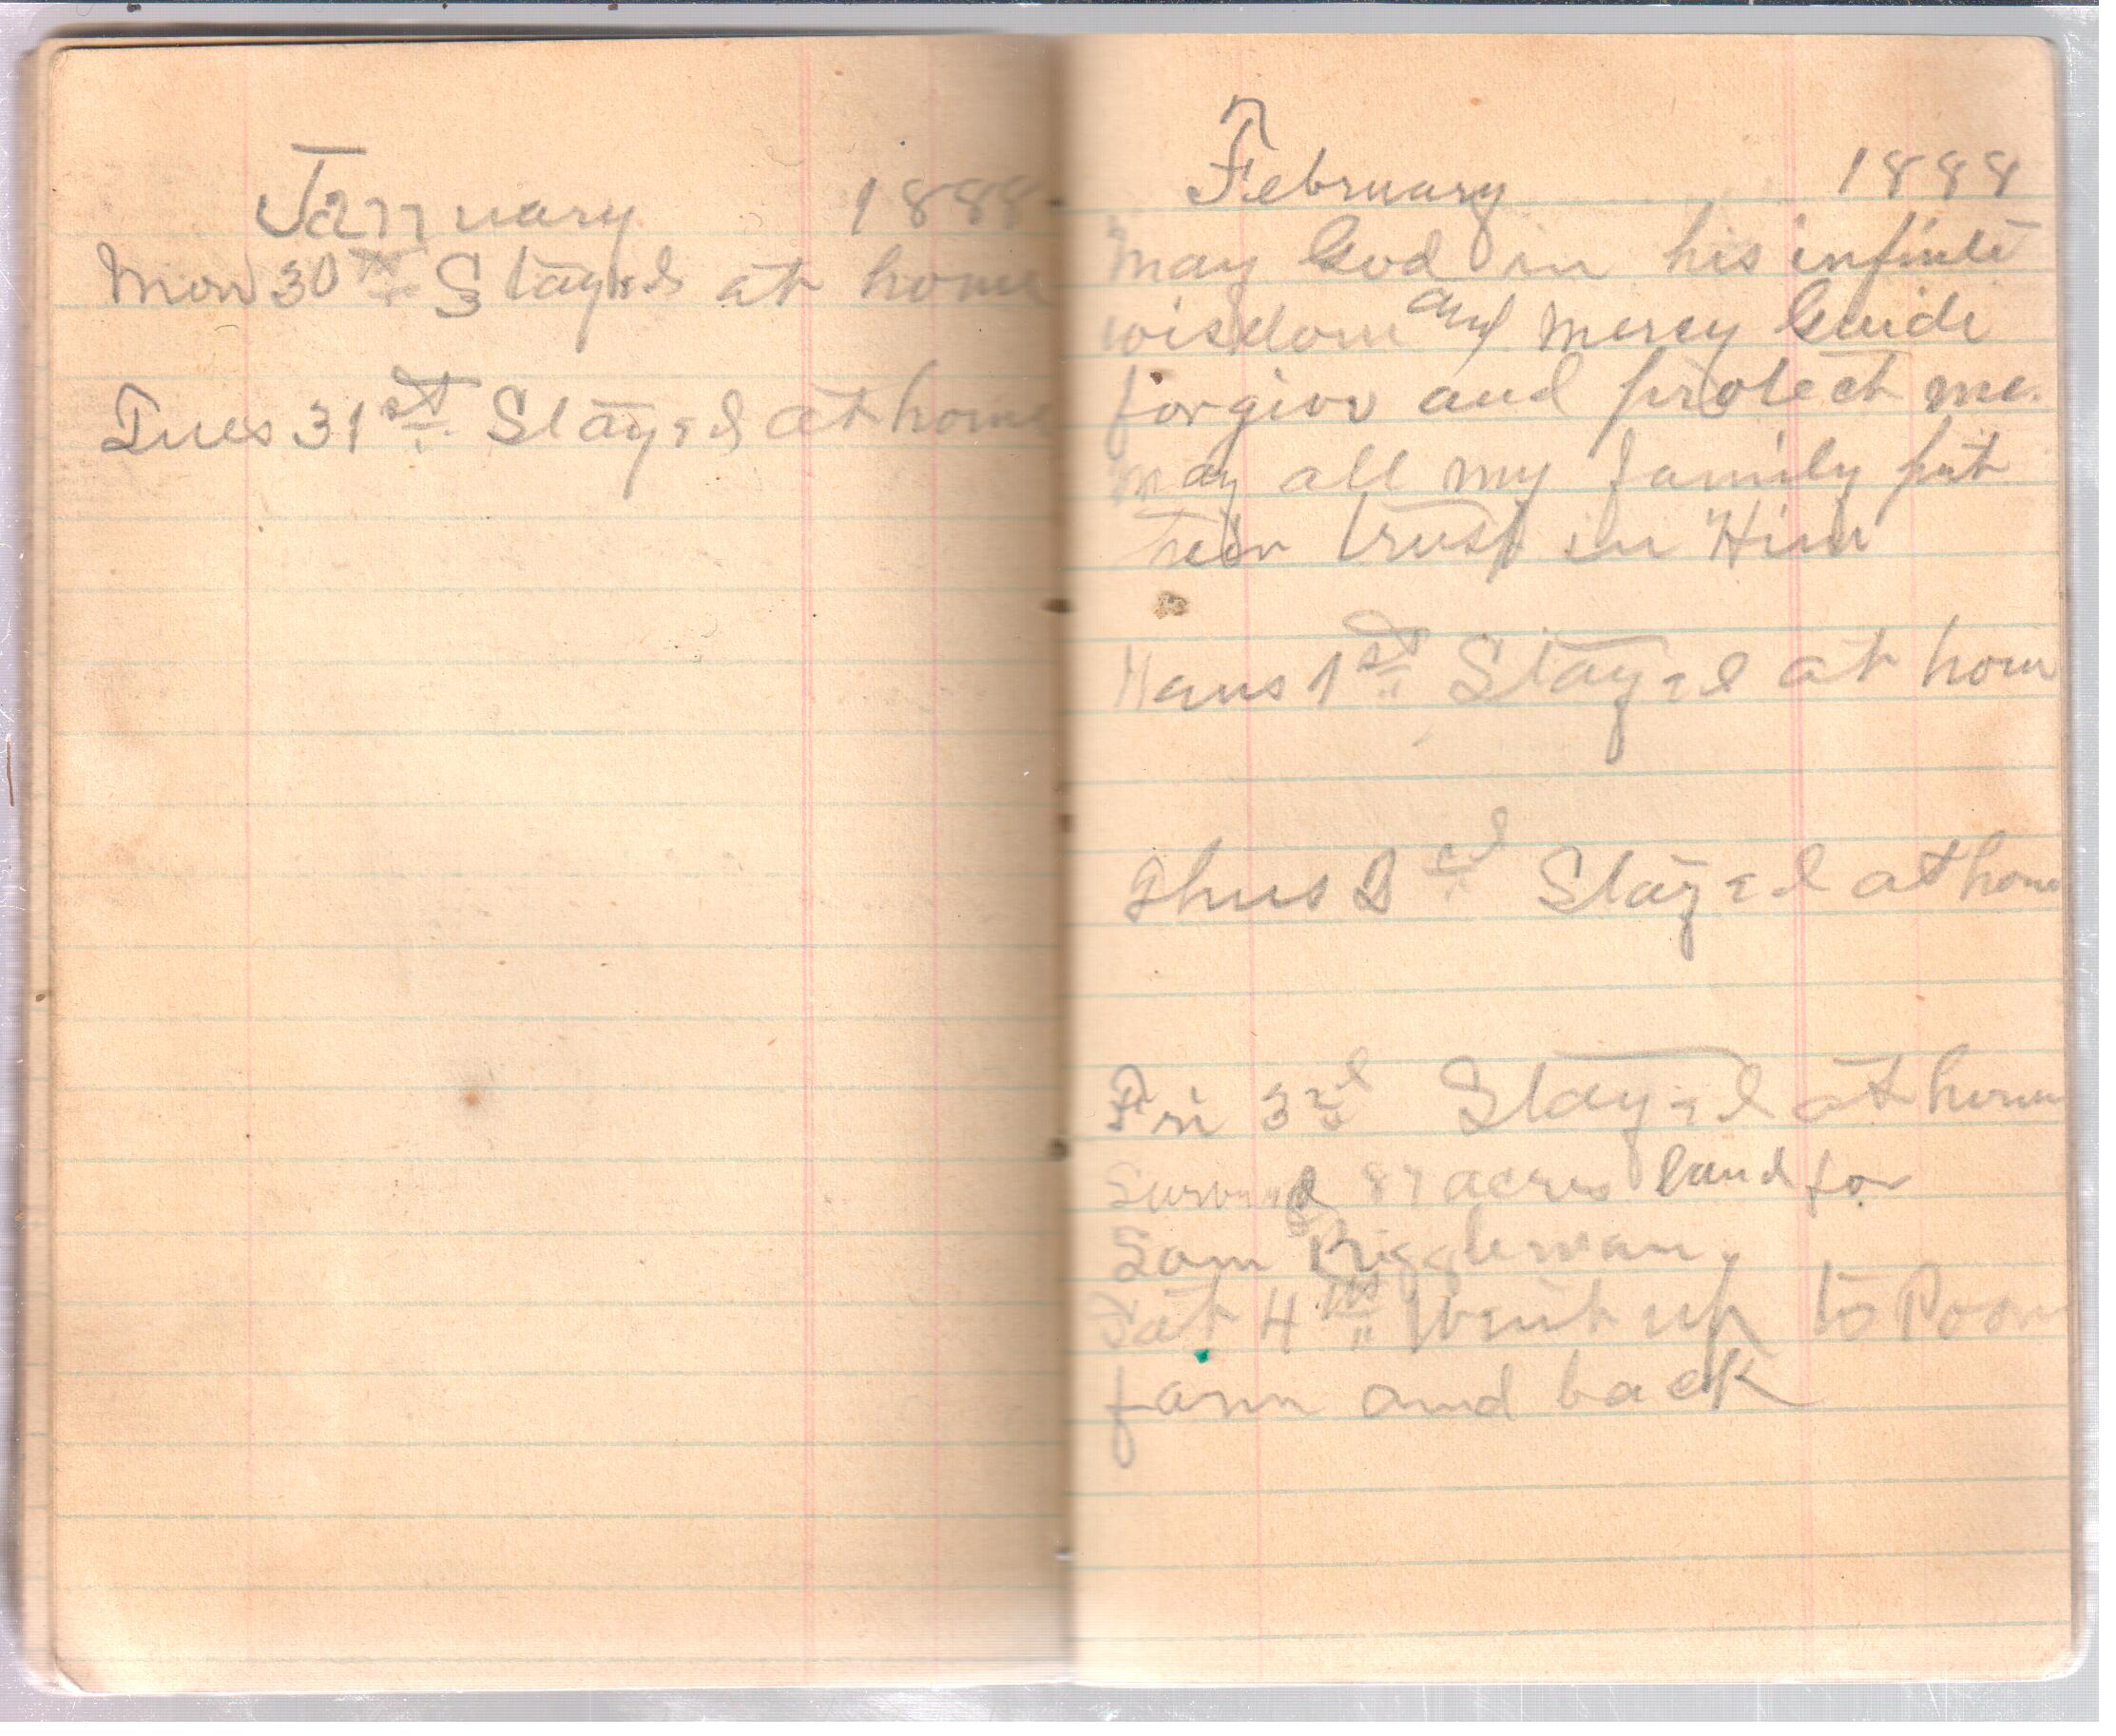 January 1888
Mon 30th Stayed at home
Tues 31st Stayed at home
February 1888
May God in his infinite
wisdom and Mercy Guide
forgive and protect me.
May all my family put
their trust in Him
1st Stayed at home
Thus 2d Stayed at home
Fri 3rd Stayed at home
Surveyed 87 acres land for
Sam Riggleman.
Sat 4th Went up to Poor
farm and back